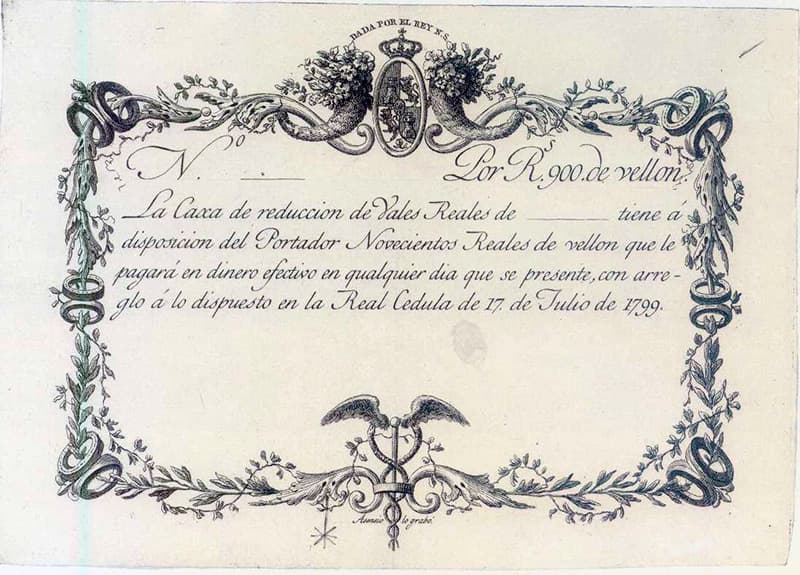 DADA POR EL REY N.S.
N.º ______ Por R.s 900. de vellon.
La Caxa de reduccion de Vales Reales de ______ tiene á
disposicion del Portador Novecientos Reales de vellon que le
pagará en dinero efectivo en qualquier dia que se presente, con arre-
glo á lo dispuesto en la Real Cedula de 17. de Julio de 1799.
Asensio lo grabó.